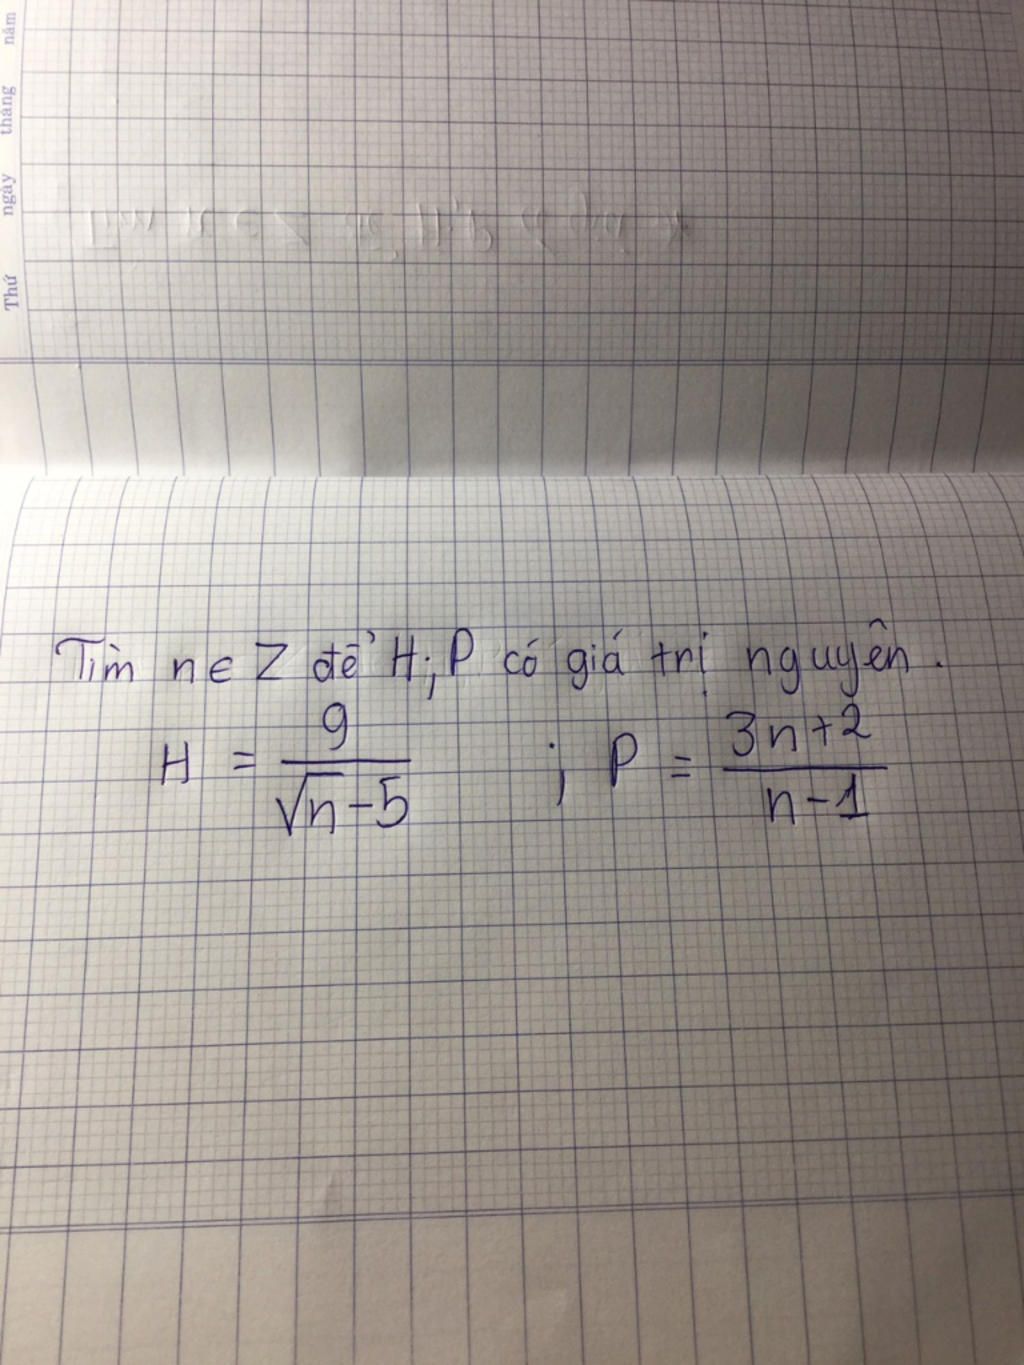 Thứ ngày tháng năm
Tìm n ∈ Z để H; P có giá trị nguyên.
H = 9/(√n - 5) ; P = (3n+2)/(n-1)